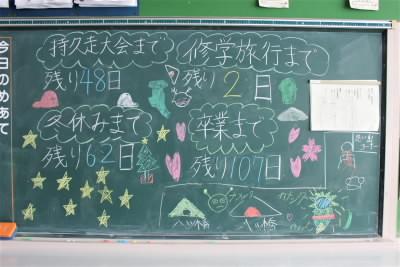 持久走大会まで
残り48日
修学旅行まで
残り2日
冬休みまで
残り62日
卒業まで
残り107日
今日のめあて
八ツ橋
八ツ橋